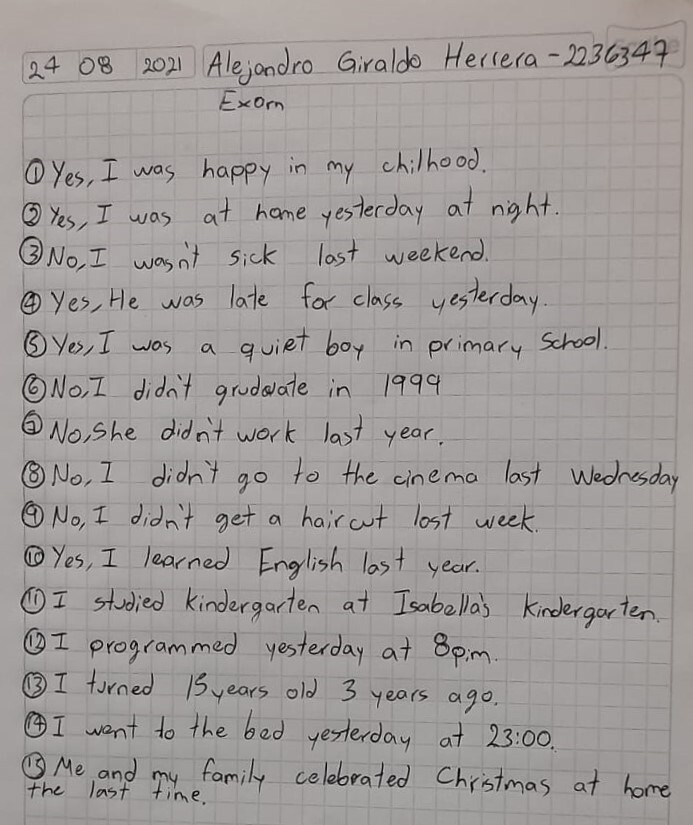 24 08 2021 Alejandro Giraldo Herrera - 2236347
Exam
① Yes, I was happy in my chilhood.
② Yes, I was at home yesterday at night.
③ No, I wasn't sick last weekend.
④ Yes, He was late for class yesterday.
⑤ Yes, I was a quiet boy in primary School.
⑥ No, I didn't grudwate in 1999
⑦ No, She didn't work last year.
⑧ No, I didn't go to the cinema last Wednesday
⑨ No, I didn't get a haircut lost week.
⑩ Yes, I learned English last year.
⑪ I studied kindergarten at Isabella's Kindergarten.
⑫ I programmed yesterday at 8p.m.
⑬ I turned 15 years old 3 years ago.
⑭ I went to the bed yesterday at 23:00.
⑮ Me and my family celebrated Christmas at home
the last time.